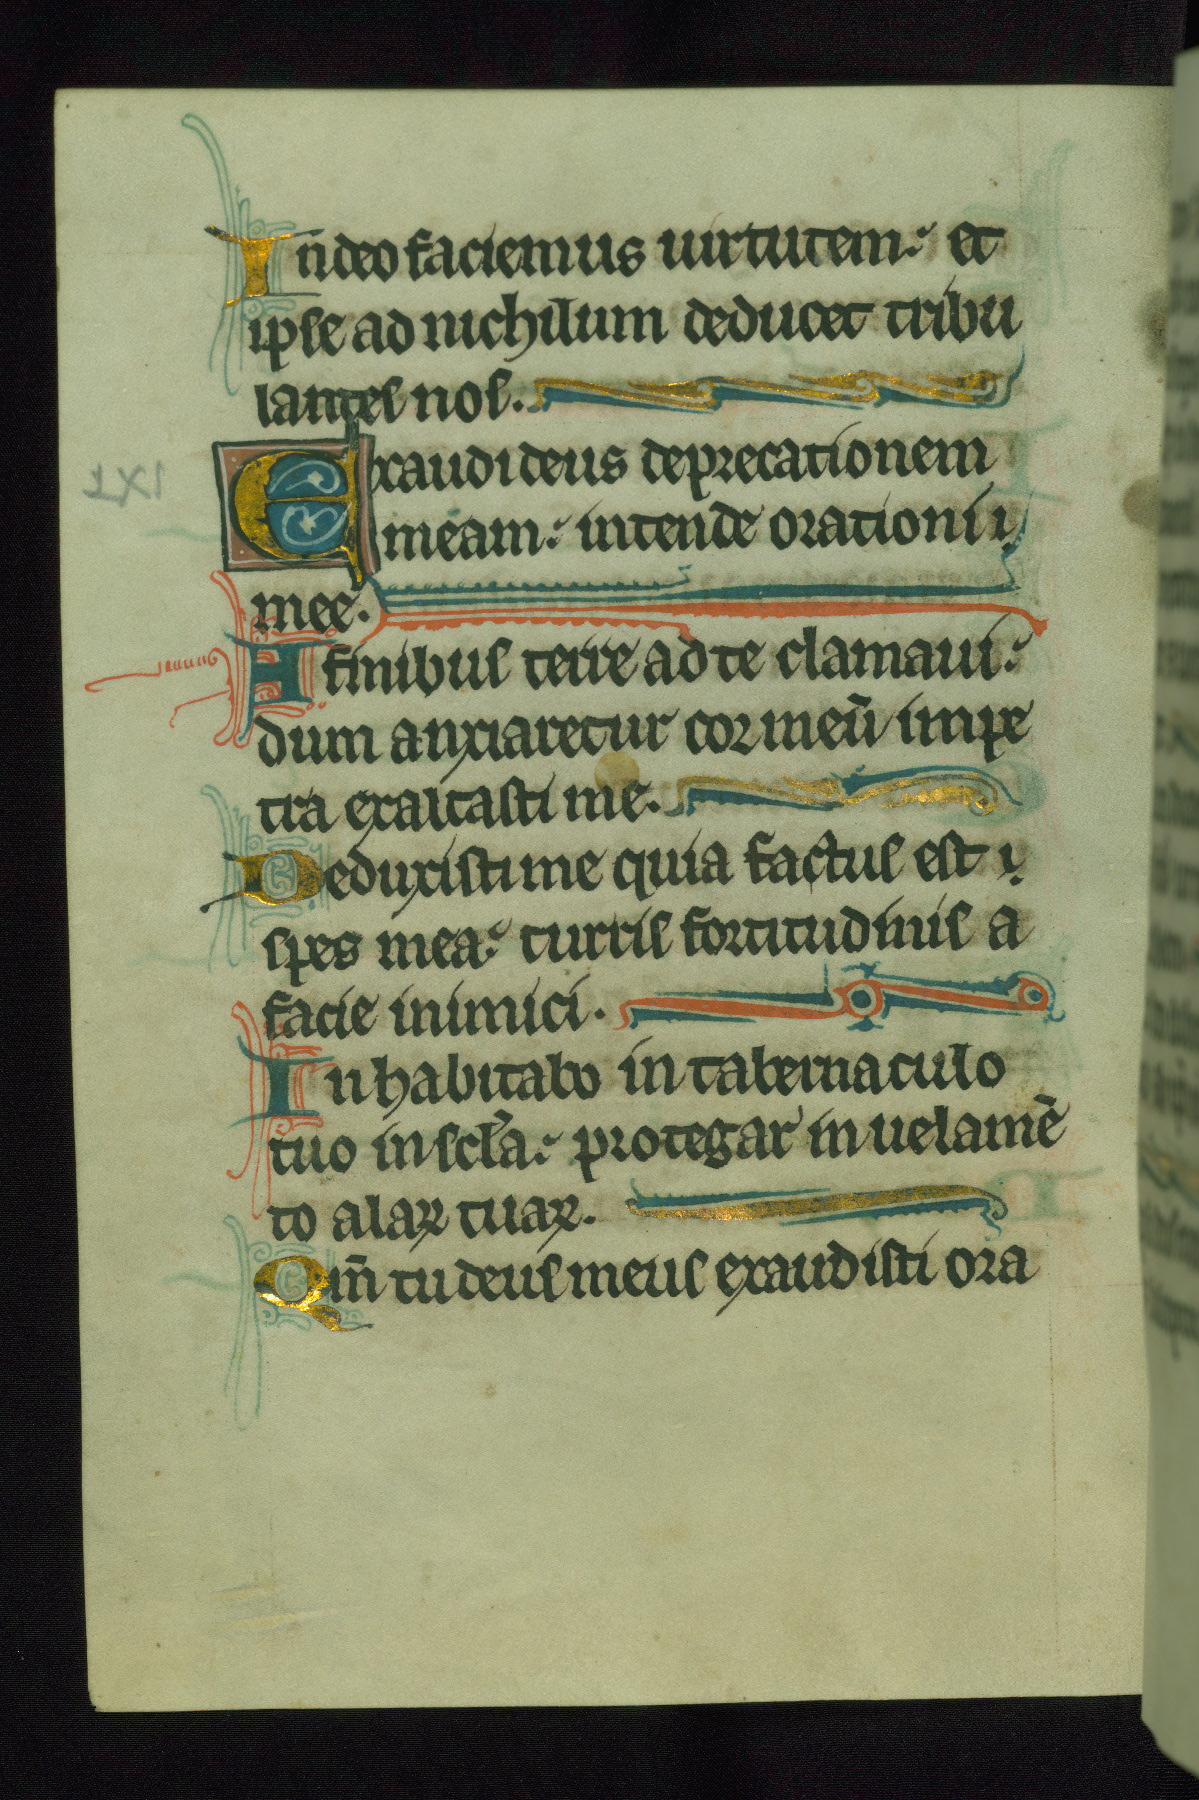 In deo faciemus uirtutem: et
ipse ad nichilum deducet tribu
lantes nos.
Exaudi deus deprecationem
meam: intende orationi
mee.
A finibus terre ad te clamaui:
dum anxiaretur cor meū in pe
tra exaltasti me.
Deduxisti me quia factus est
spes mea: turris fortitudinis a
facie inimici.
Inhabitabo in tabernaculo
tuo in scl̄a: protegar in uelamē
to alaꝝ tuaꝝ.
Qm̄ tu deus meus exaudisti ora